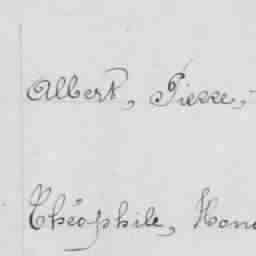 Albert, Pierre,
Théophile, Hono